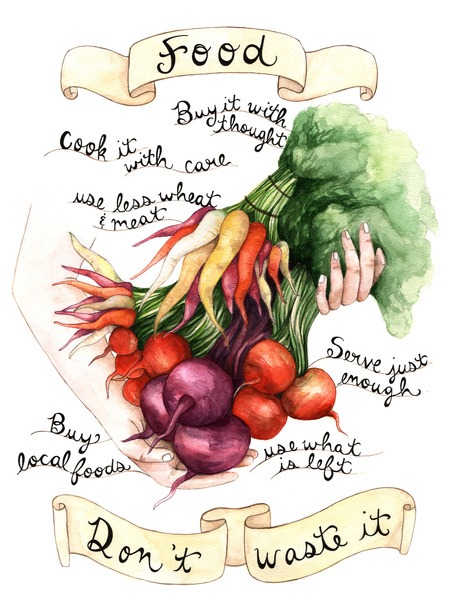 Food
Buy it with
thought
Cook it
with care
use less wheat
& meat
Serve just
enough
Buy
local foods
use what
is left
Don't
waste it